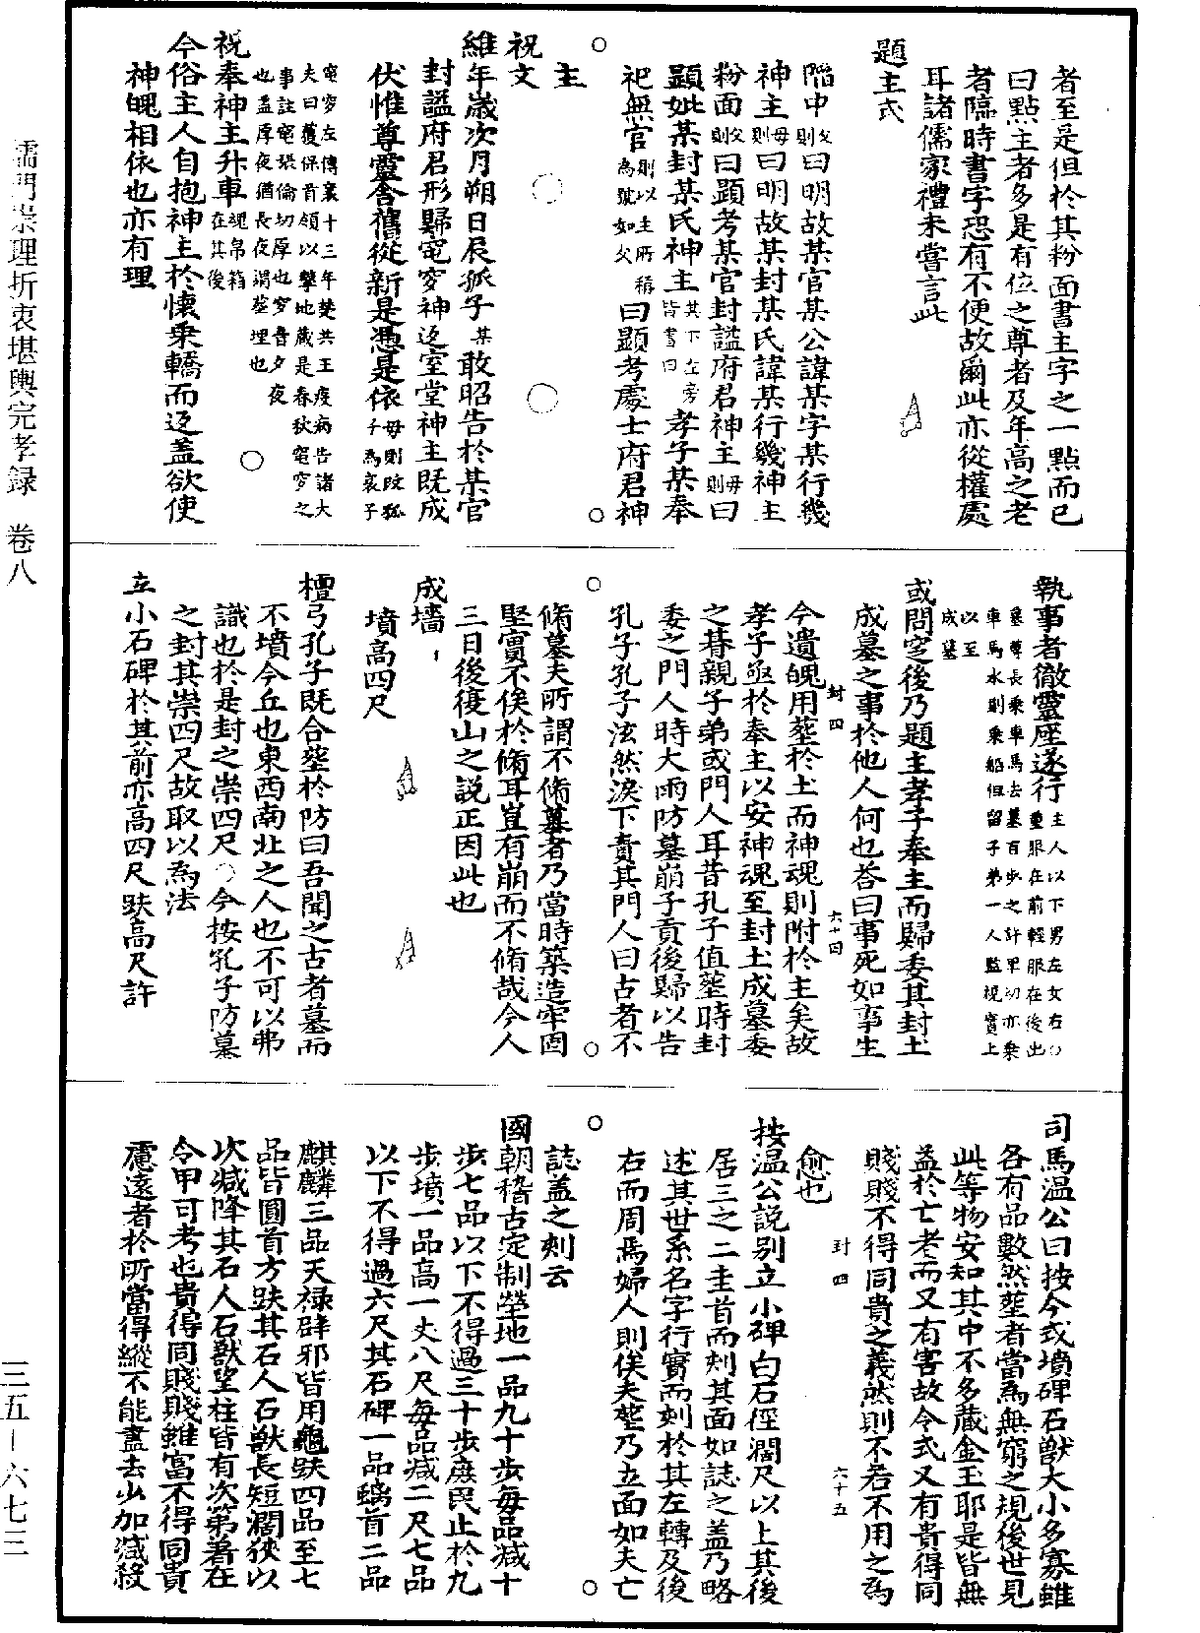 者至是但於其粉面書主字之一點而已
曰點主者多是有位之尊者及年高之老
者臨時書字恐有不便故爾此亦從權處
耳諸儒家禮未嘗言此
題主式
陷中父則曰明故某官某公諱某字某行幾
神主母則曰明故某封某氏諱某行幾神主
粉面父則曰顯考某官封謚府君神主母則曰
顯妣某封某氏神主其下左旁皆書曰孝子某奉
祀無官則以生所稱為號如父曰顯考處士府君神
主
祝文
維年歲次月朔日辰孤子某敢昭告於某官
封謚府君形歸窀穸神返室堂神主既成
伏惟尊靈舍舊從新是憑是依母則改孤子為哀子
窀穸左傳襄十三年楚共王疾病告諸大
夫曰獲保首領以歿地藏是春秋窀穸之
事註窀株倫切厚也穸音夕夜
也盖厚夜猶長夜謂葬埋也
祝奉神主升車魂帛箱在其後
今俗主人自抱神主於懷乘轎而返盖欲使
神魄相依也亦有理
執事者徹靈座遂行主人以下男左女右
重服在前輕服在後出
墓尊長乘車馬去墓百步之許卑幼亦乘
車馬水則乘船但留子弟一人監視實土
以至
成墓
或問窆後乃題主孝子奉主而歸委其封土
成墓之事於他人何也荅曰事死如事生
封四 六十四
今遺魄用葬於土而神魂則附於主矣故
孝子亟於奉主以安神魂至封土成墓委
之朞親子弟或門人耳昔孔子值葬時封
委之門人時大雨防墓崩子貢後歸以告
孔子孔子泫然淚下責其門人曰古者不
脩墓夫所謂不脩墓者乃當時築造牢固
堅實不俟於脩耳豈有崩而不脩哉今人
三日後復山之說正因此也
成墻
墳高四尺
檀弓孔子既合葬於防曰吾聞之古者墓而
不墳今丘也東西南北之人也不可以弗
識也於是封之崇四尺○今按孔子防墓
之封其崇四尺故取以為法
立小石碑於其前亦高四尺趺高尺許
司馬溫公曰按今式墳碑石獸大小多寡雖
各有品數然葬者當為無窮之規後世見
此等物安知其中不多藏金玉耶是皆無
益於亡者而又有害故令式又有貴得同
賤賤不得同貴之義然則不若不用之為
封四 六十五
愈也
按溫公說别立小碑白石徑濶尺以上其後
居三之二圭首而刻其面如誌之盖乃略
述其世系名字行實而刻於其左轉及後
右而周焉婦人則俟夫葬乃立面如夫亡
誌盖之刻云
國朝稽古定制塋地一品九十步每品减十
步七品以下不得過三十步庶民止於九
步墳一品高一丈八尺每品减二尺七品
以下不得過六尺其石碑一品螭首二品
麒麟三品天禄辟邪皆用龜趺四品至七
品皆圓首方趺其石人石獸長短濶狹以
次减降其石人石獸望柱皆有次第著在
令甲可考也貴得同賤賤雖富不得同貴
慮遠者於所當得縱不能盡去少加减殺
儒門崇理折衷堪輿完孝録 卷八
三五－六七三